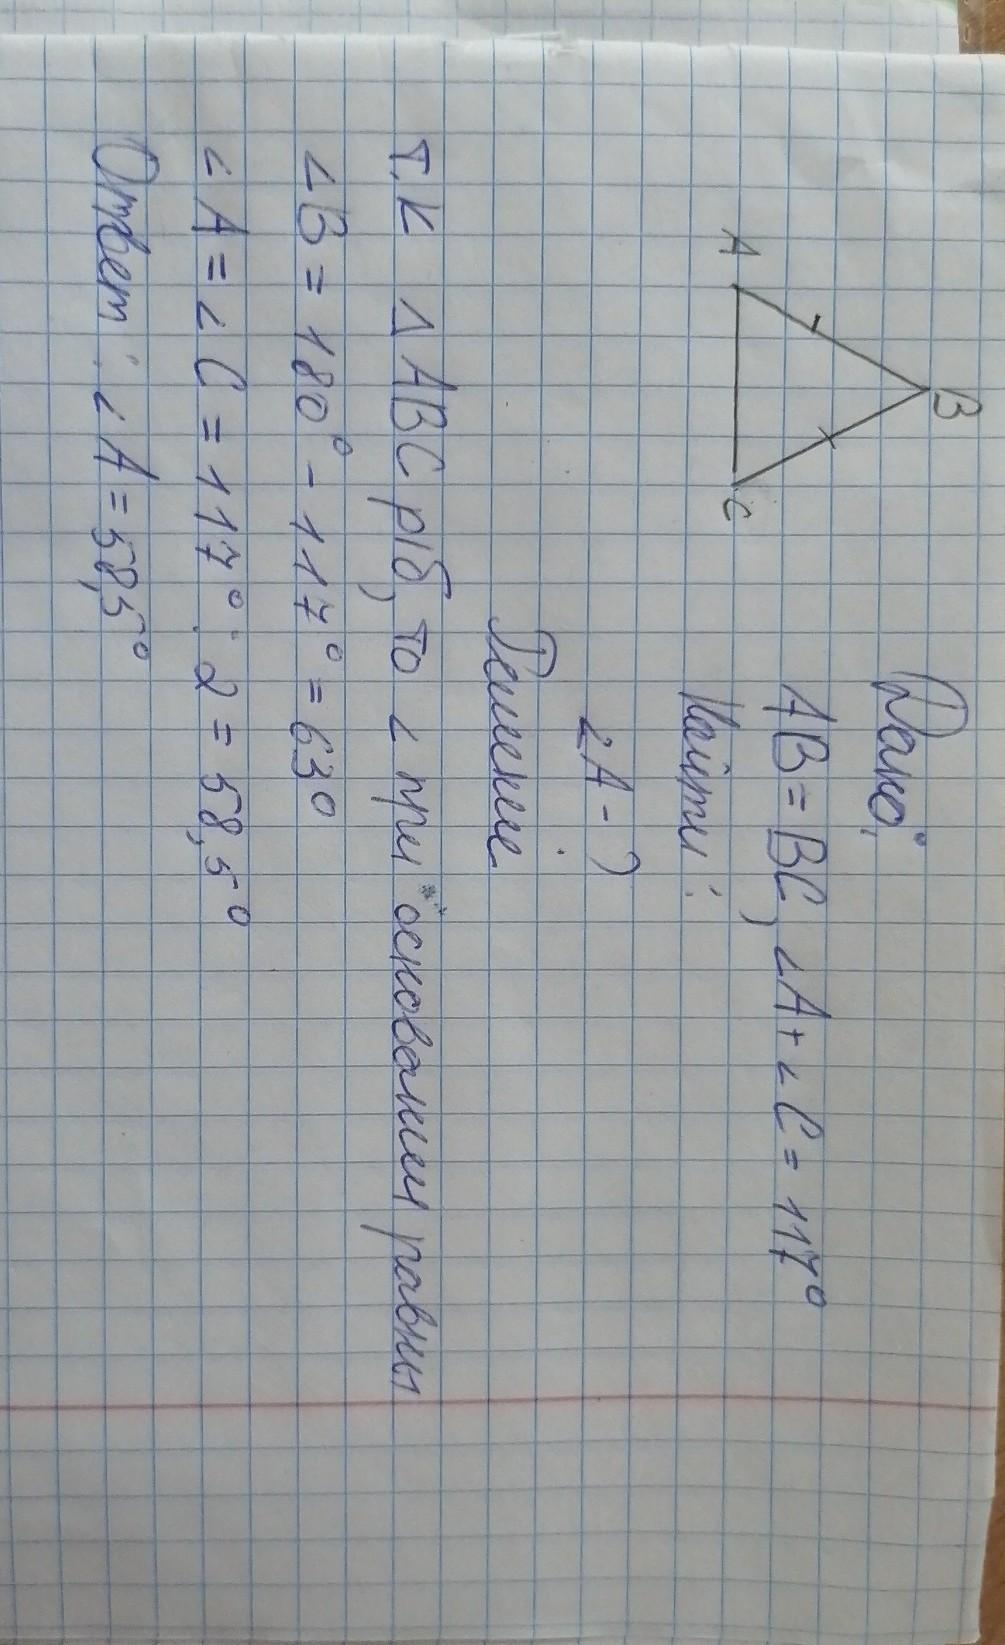 B
A
C
Дано:
AB = BC, ∠A + ∠C = 117°
Найти:
∠A - ?
Решение
т.к Δ ABC р/б, то ∠ при основании равны
∠B = 180° - 117° = 63°
∠A = ∠C = 117° : 2 = 58,5°
Ответ: ∠A = 58,5°